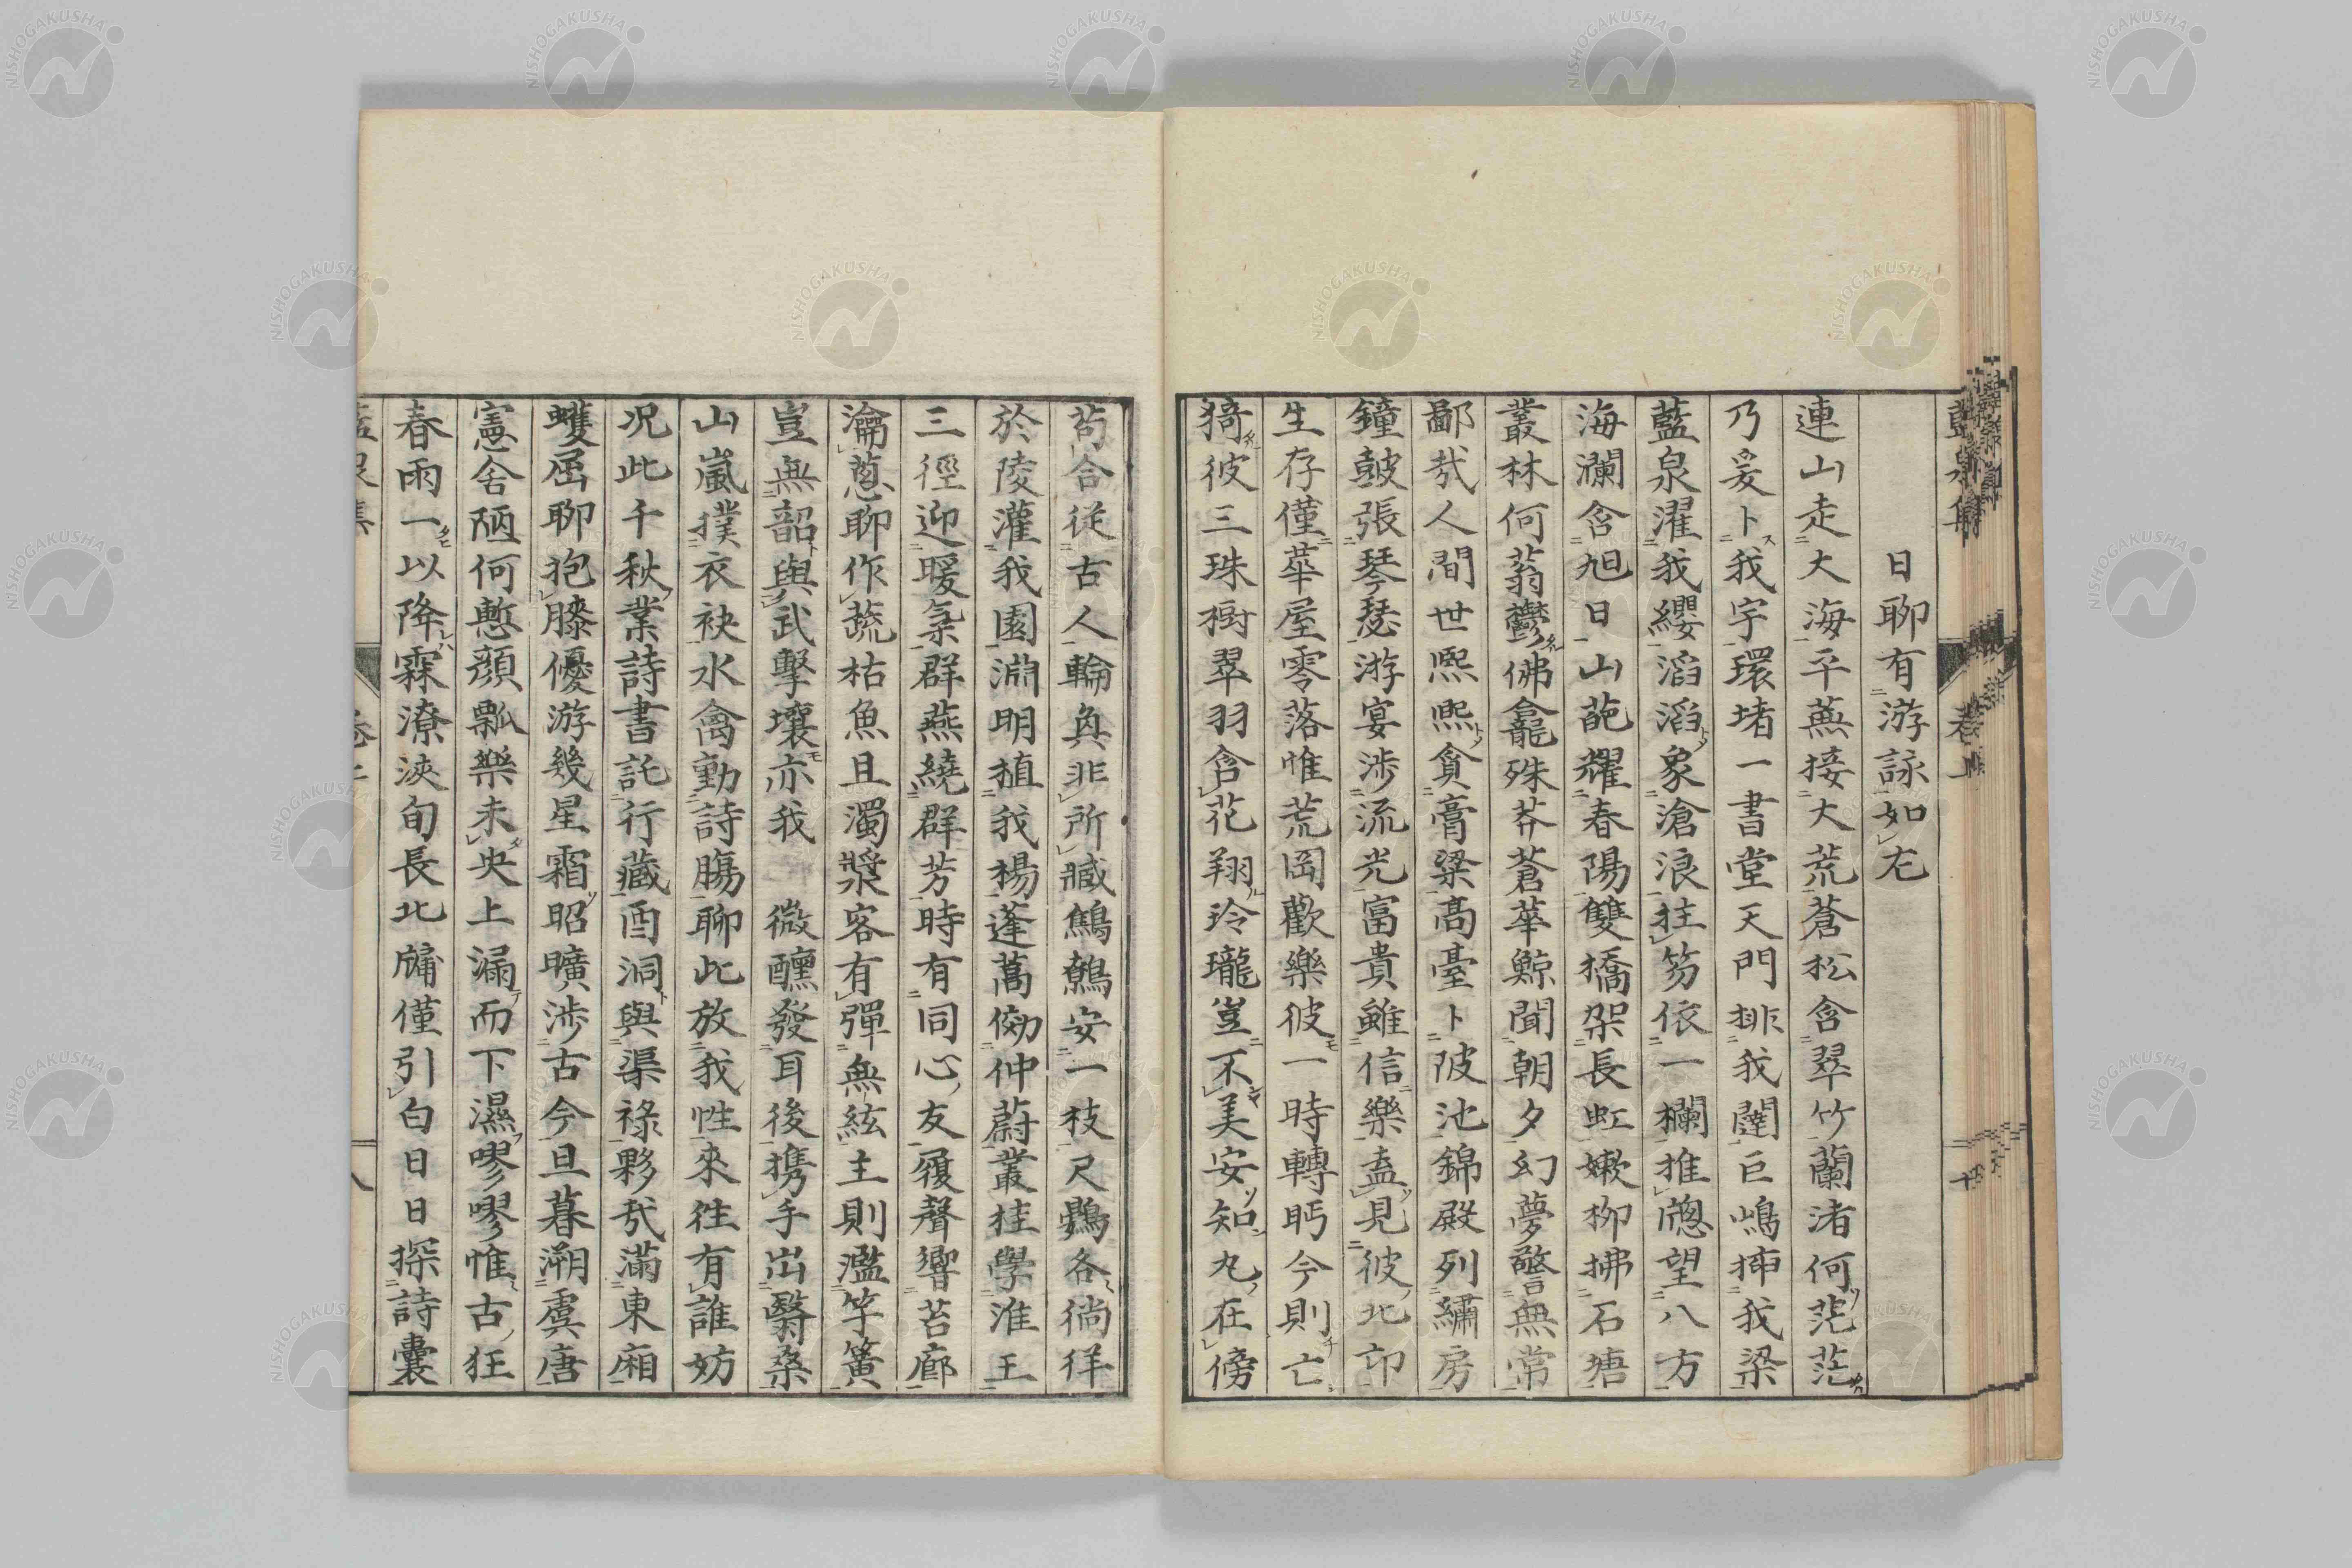 日聊有游詠如左
連山走大海平蕪接大荒蒼松含翠竹蘭渚何茫茫
乃爰卜我宇環堵一書堂天門排我闥巨嶋插我梁
藍泉濯我纓滔滔象滄浪拄笏依一欄推牕望八方
海瀾含旭日山葩耀春陽雙橋架長虹嫩柳拂石塘
叢林何蓊鬱佛龕殊莽蒼華鯨聞朝夕幻夢警無常
鄙哉人間世熈熈貪膏粱高臺卜陂池錦殿列繡房
鐘皷張琴瑟游宴涉流光富貴雖信樂盍見彼北邙
生存僅華屋零落惟荒岡歡樂彼一時轉眄今則亡
猗彼三珠樹翠羽含花翔玲瓏豈不美安知丸在傍
苟合從古人輪奐非所臧鷦鷯安一枝尺鷃各徜徉
於陵灌我園淵明植我楊蓬蒿倣仲蔚叢桂學淮王
三徑迎暖氣群燕繞群芳時有同心友履聲響苔廊
瀹葱聊作蔬枯魚且濁漿客有彈無絃主則濫竽簧
豈無韶與武擊壤亦我 微醺發耳後携手出翳桑
山嵐撲衣袂水禽動詩腸聊此放我性來往有誰妨
况此千秋業詩書託行藏酉洞與渠祿夥哉滿東廂
蠖屈聊抱膝優游幾星霜昭曠涉古今旦暮溯虞唐
憲舍陋何慙顔瓢樂未央上漏而下濕嘐嘐惟古狂
春雨一以降霖潦浹旬長北牖僅引白日日探詩囊
藍泉集 卷上